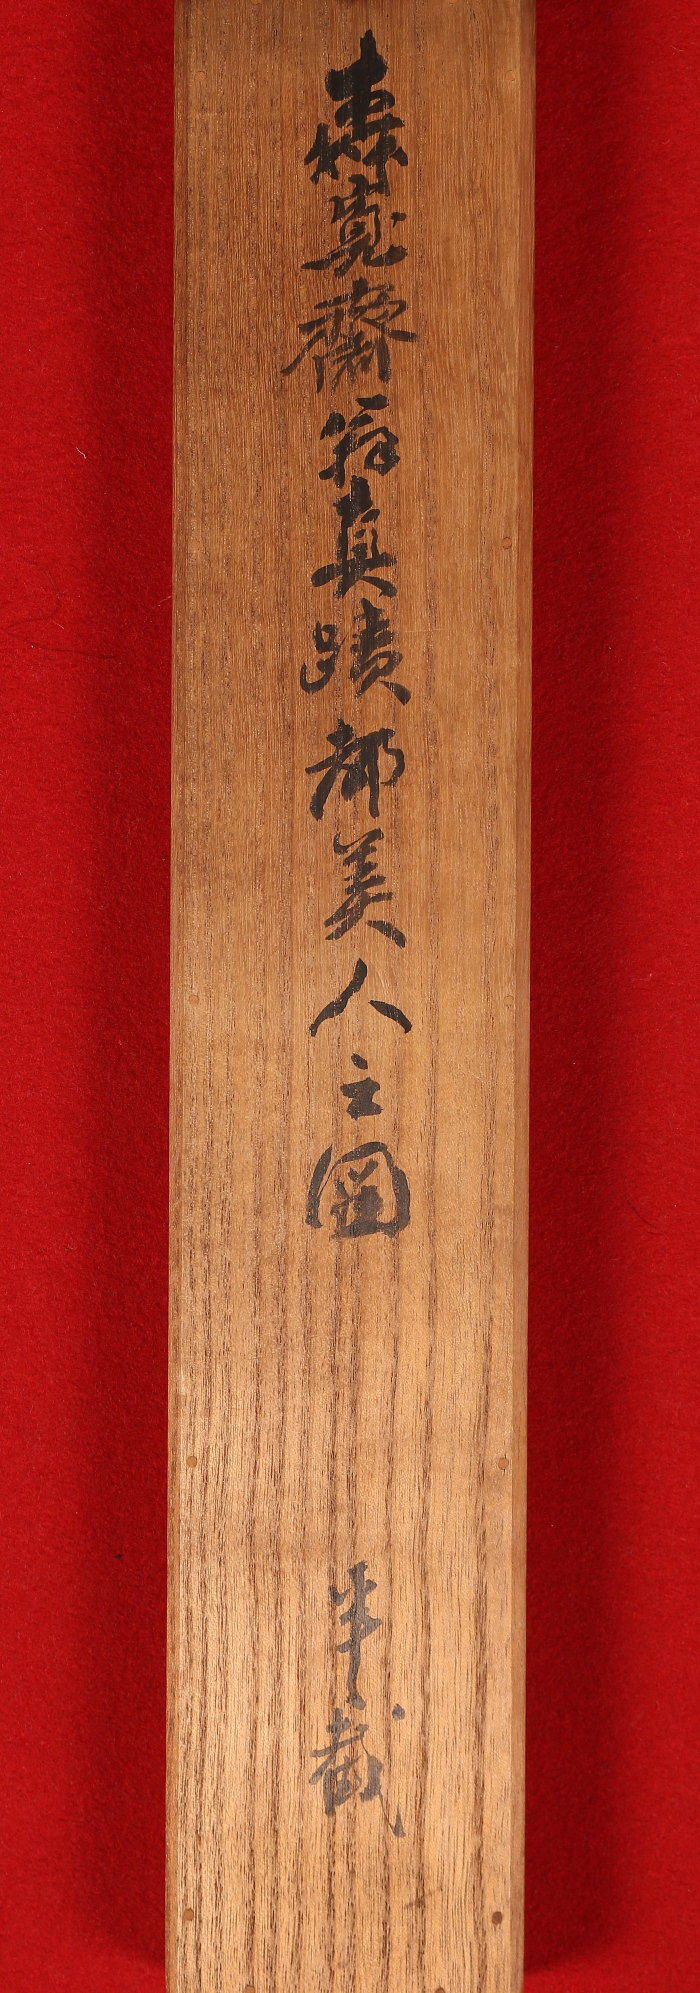 森寛齋翁真蹟都美人之圖
半截